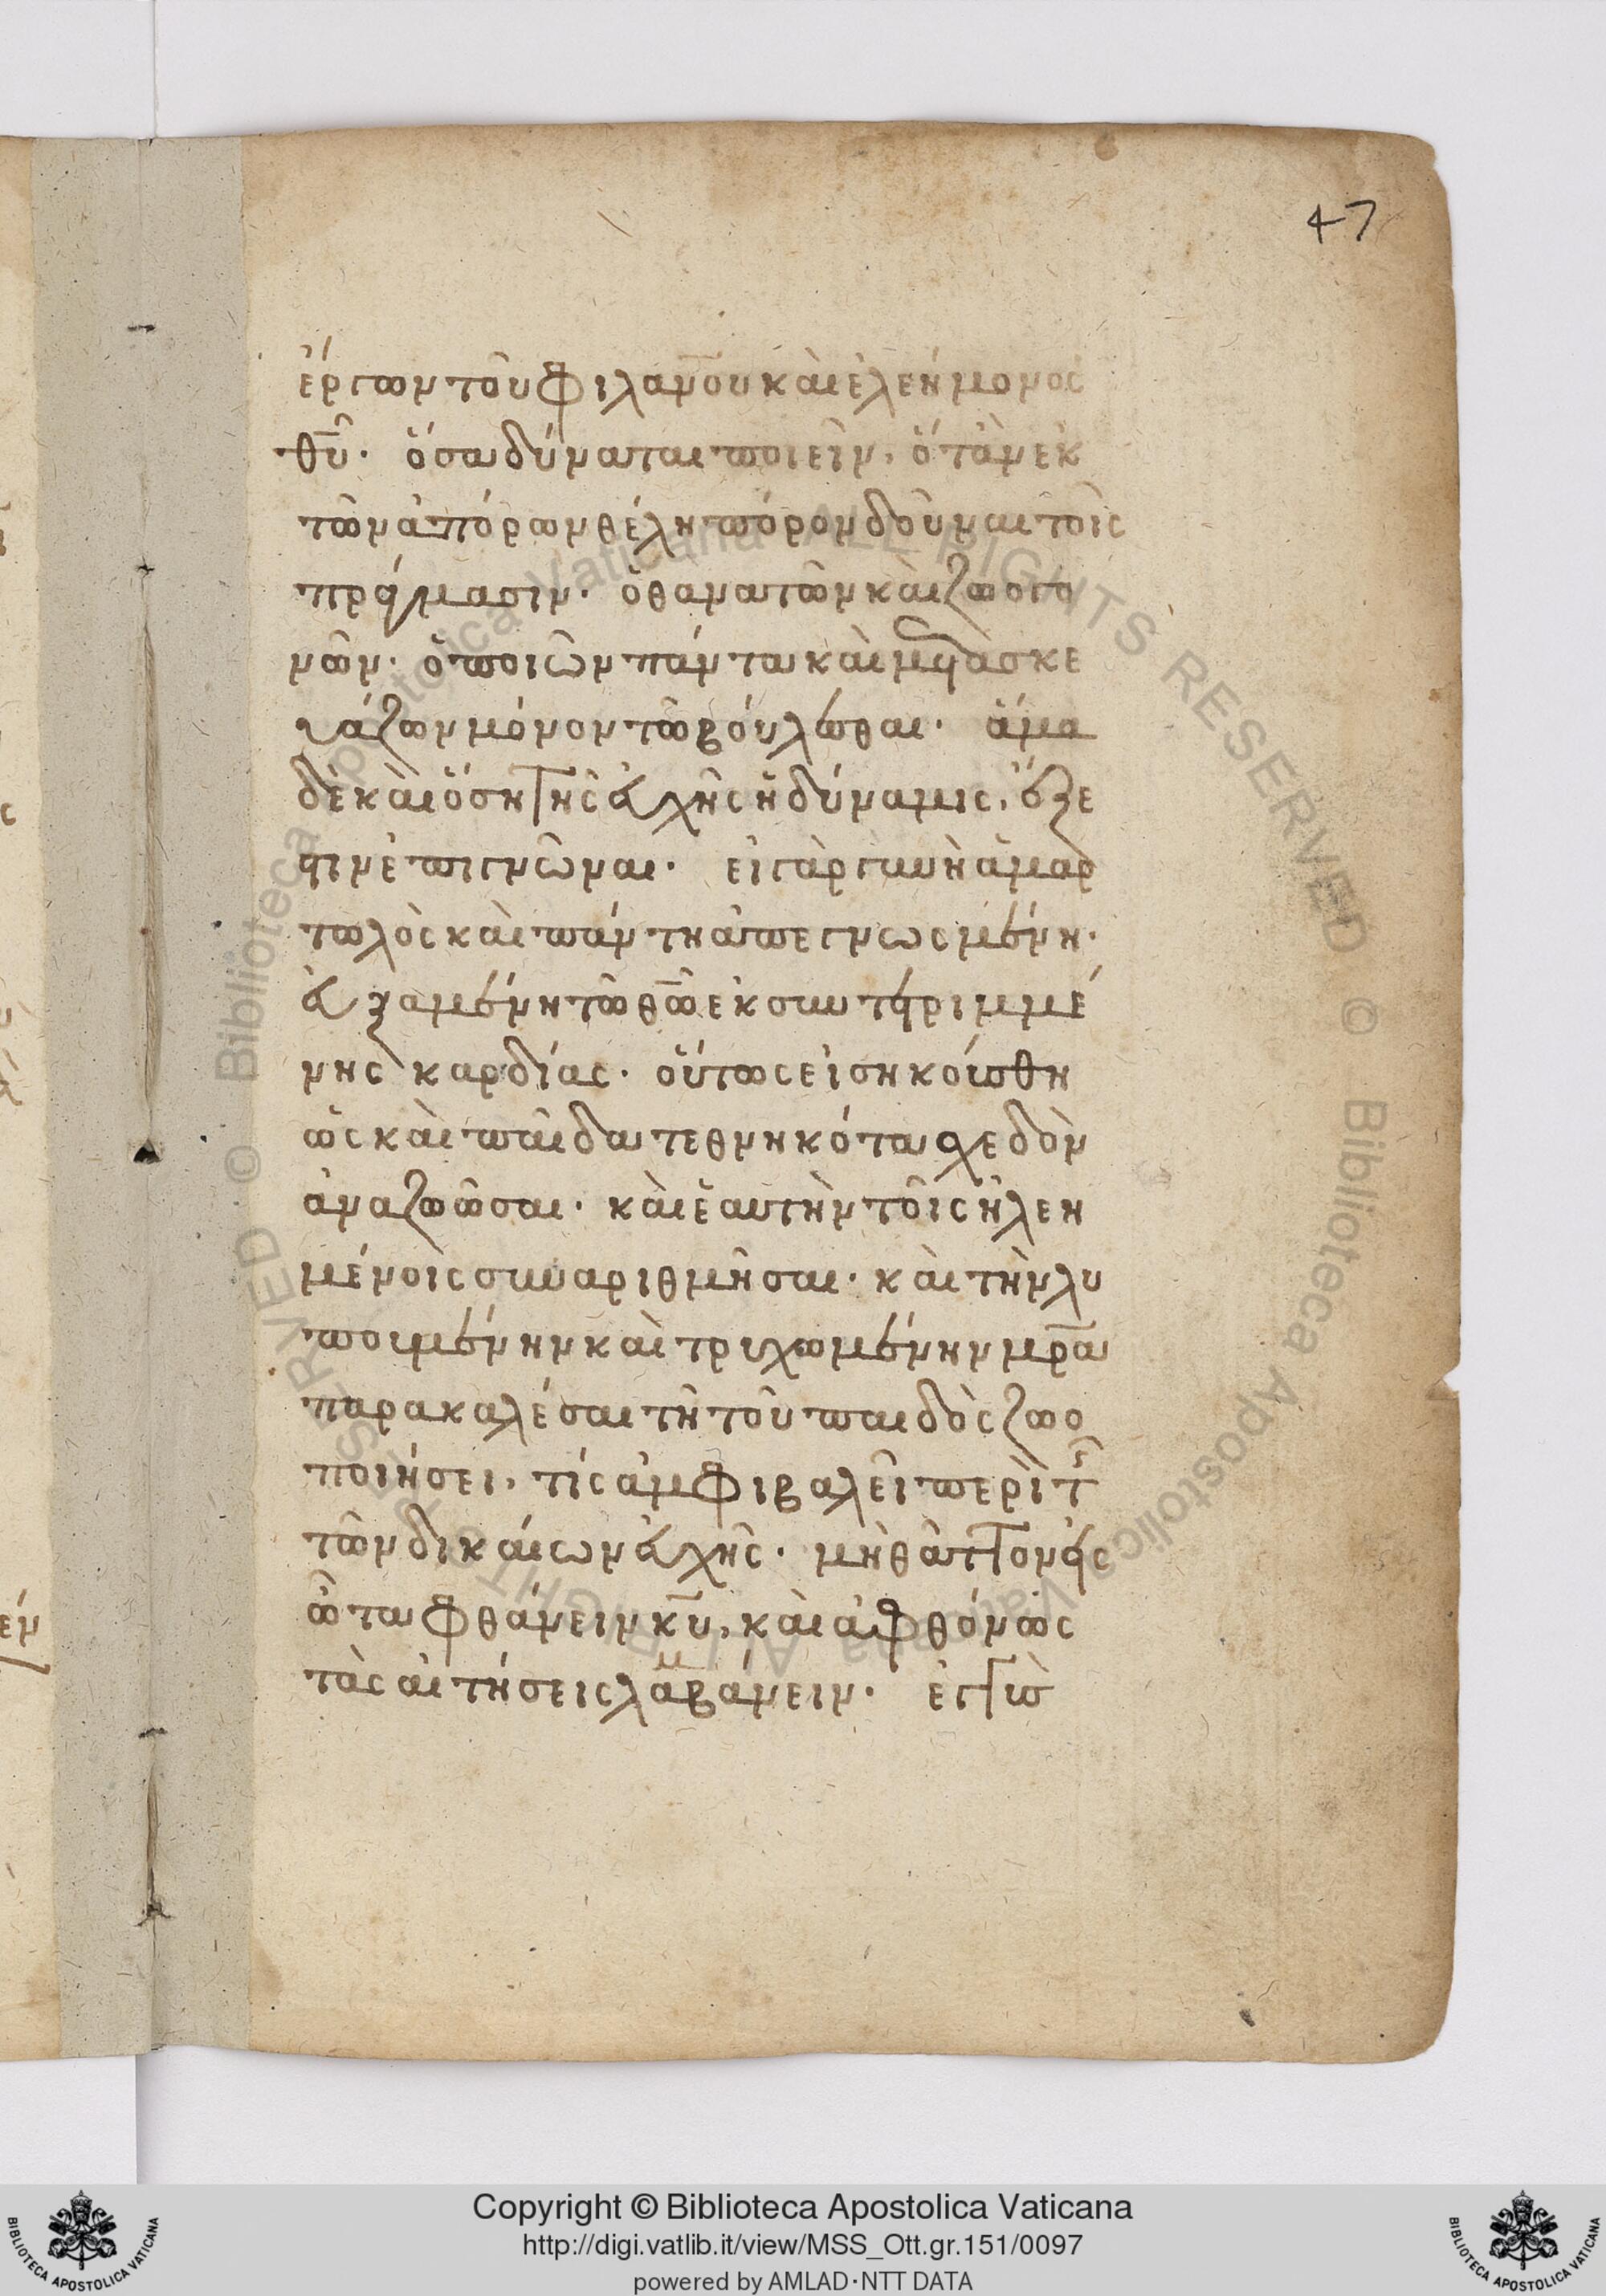 47
ἔργων τοῦ φιλανου καὶ ἐλεήμονος
θυ. ὅσα δύναται ποιεῖν, ὅταν ἐκ
τῶν ἀπόρων θέλη πόρον δοῦναι τοῖς
πράγμασιν. ὁ θανατῶν καὶ ζωογο
νῶν. ὁ ποιῶν πάντα καὶ μετασκε
υάζων μόνον τῶ βούλεσθαι. ἅμα
δὲ καὶ ὅση τῆς εὐχῆς ἡ δύναμις, ἔξε
στιν ἐπιγνῶναι. εἰ γὰρ γυνὴ ἁμαρ
τωλὸς καὶ πάντη ἀπεγνωσμένη.
εὐξαμένη τῶ θω ἐκ συντετριμμέ
νης καρδίας. οὕτως εἰσηκούσθη
ὡς καὶ παῖδα τεθνηκότα σχεδὸν
ἀναζωῶσαι. καὶ ἑαυτὴν τοῖς ἠλεη
μένοις συναριθμῆσαι. καὶ τὴν λυ
πουμένην καὶ τρυχωμένην μρα
παρακαλέσαι τῆ τοῦ παιδὸς ζωο
ποιήσει, τίς ἀμφιβαλεῖ περὶ τῆς
τῶν δικαίων εὐχῆς. μὴ θᾶττον εἰς
ὦτα φθάνειν κυ, καὶ ἀφθόνως
τὰς αἰτήσεις λαμβάνειν. ἐγγὺς
Copyright © Biblioteca Apostolica Vaticana
http://digi.vatlib.it/view/MSS_Ott.gr.151/0097
powered by AMLAD·NTT DATA
BIBLIOTECA APOSTOLICA VATICANA
BIBLIOTECA APOSTOLICA VATICANA